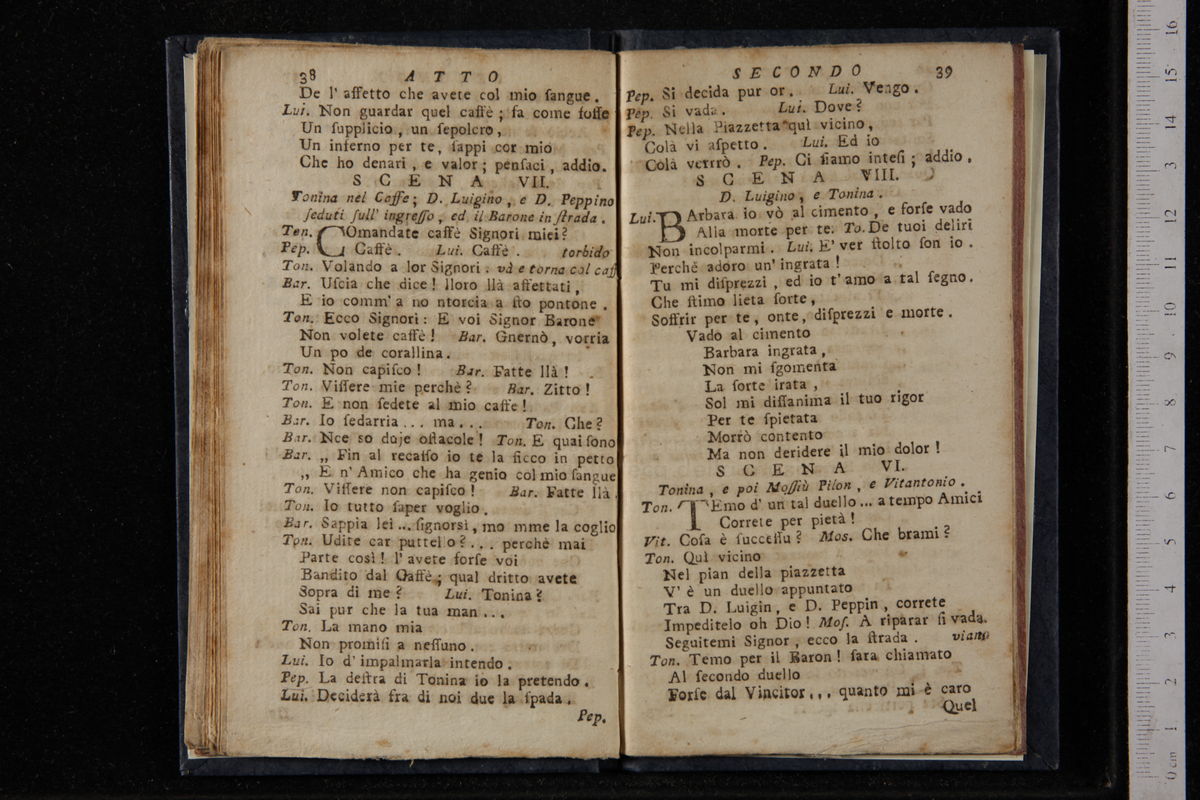 38 ATTO
De l' affetto che avete col mio ſangue.
Lui. Non guardar quel caffè; fa come foſſe
Un ſupplicio, un ſepolcro,
Un inferno per te, ſappi cor mio
Che ho denari, e valor; penſaci, addio.
SCENA VII.
Tonina nel Caffe; D. Luigino, e D. Peppino
ſeduti ſull' ingreſſo, ed il Barone in ſtrada.
Ton. COmandate caffè Signori miei?
Pep. Caffè. Lui. Caffè. torbido
Ton. Volando a lor Signori. và e torna col caff
Bar. Uſcia che dice! lloro llà aſſettati,
E io comm' a no ntorcia a ſto pontone.
Ton. Ecco Signori: E voi Signor Barone
Non volete caffè! Bar. Gnernò, vorria
Un po de corallina.
Ton. Non capiſco! Bar. Fatte llà!
Ton. Viſſere mie perchè? Bar. Zitto!
Ton. E non ſedete al mio caffe!
Bar. Io ſedarria... ma... Ton. Che?
Bar. Nce so doje oſtacole! Ton. E quai ſono
Bar. „ Fin al recaſſo io te la ficco in petto
„ E n' Amico che ha genio col mio ſangue
Ton. Viſſere non capiſco! Bar. Fatte llà.
Ton. Io tutto ſaper voglio.
Bar. Sappia lei... ſignorsì, mo mme la coglio
Ton. Udite car puttello?... perchè mai
Parte così! l' avete forſe voi
Bandito dal Caffè; qual dritto avete
Sopra di me? Lui. Tonina?
Sai pur che la tua man...
Ton. La mano mia
Non promiſi a neſſuno.
Lui. Io d' impalmarla intendo.
Pep. La deſtra di Tonina io la pretendo.
Lui. Deciderà fra di noi due la ſpada.
Pep.
SECONDO 39
Pep. Si decida pur or. Lui. Vengo.
Pep. Si vada. Lui. Dove?
Pep. Nella Piazzetta quì vicino,
Colà vi aſpetto. Lui. Ed io
Colà verrrò. Pep. Ci ſiamo inteſi; addio.
SCENA VIII.
D. Luigino, e Tonina.
Lui. BArbara io vò al cimento, e forſe vado
Alla morte per te. To. De tuoi deliri
Non incolparmi. Lui. E' ver ſtolto ſon io.
Perchè adoro un' ingrata!
Tu mi diſprezzi, ed io t' amo a tal ſegno.
Che ſtimo lieta ſorte,
Soffrir per te, onte, diſprezzi e morte.
Vado al cimento
Barbara ingrata,
Non mi ſgomenta
La ſorte irata,
Sol mi diſſanima il tuo rigor
Per te ſpietata
Morrò contento
Ma non deridere il mio dolor!
SCENA VI.
Tonina, e poi Moſſiù Pilon, e Vitantonio.
Ton. TEmo d' un tal duello... a tempo Amici
Correte per pietà!
Vit. Coſa è ſucceſſu? Mos. Che brami?
Ton. Quì vicino
Nel pian della piazzetta
V' è un duello appuntato
Tra D. Luigin, e D. Peppin, correte
Impeditelo oh Dio! Moſ. A riparar ſi vada.
Seguitemi Signor, ecco la ſtrada. viano
Ton. Temo per il Baron! ſara chiamato
Al ſecondo duello
Forſe dal Vincitor,,, quanto mi è caro
Quel